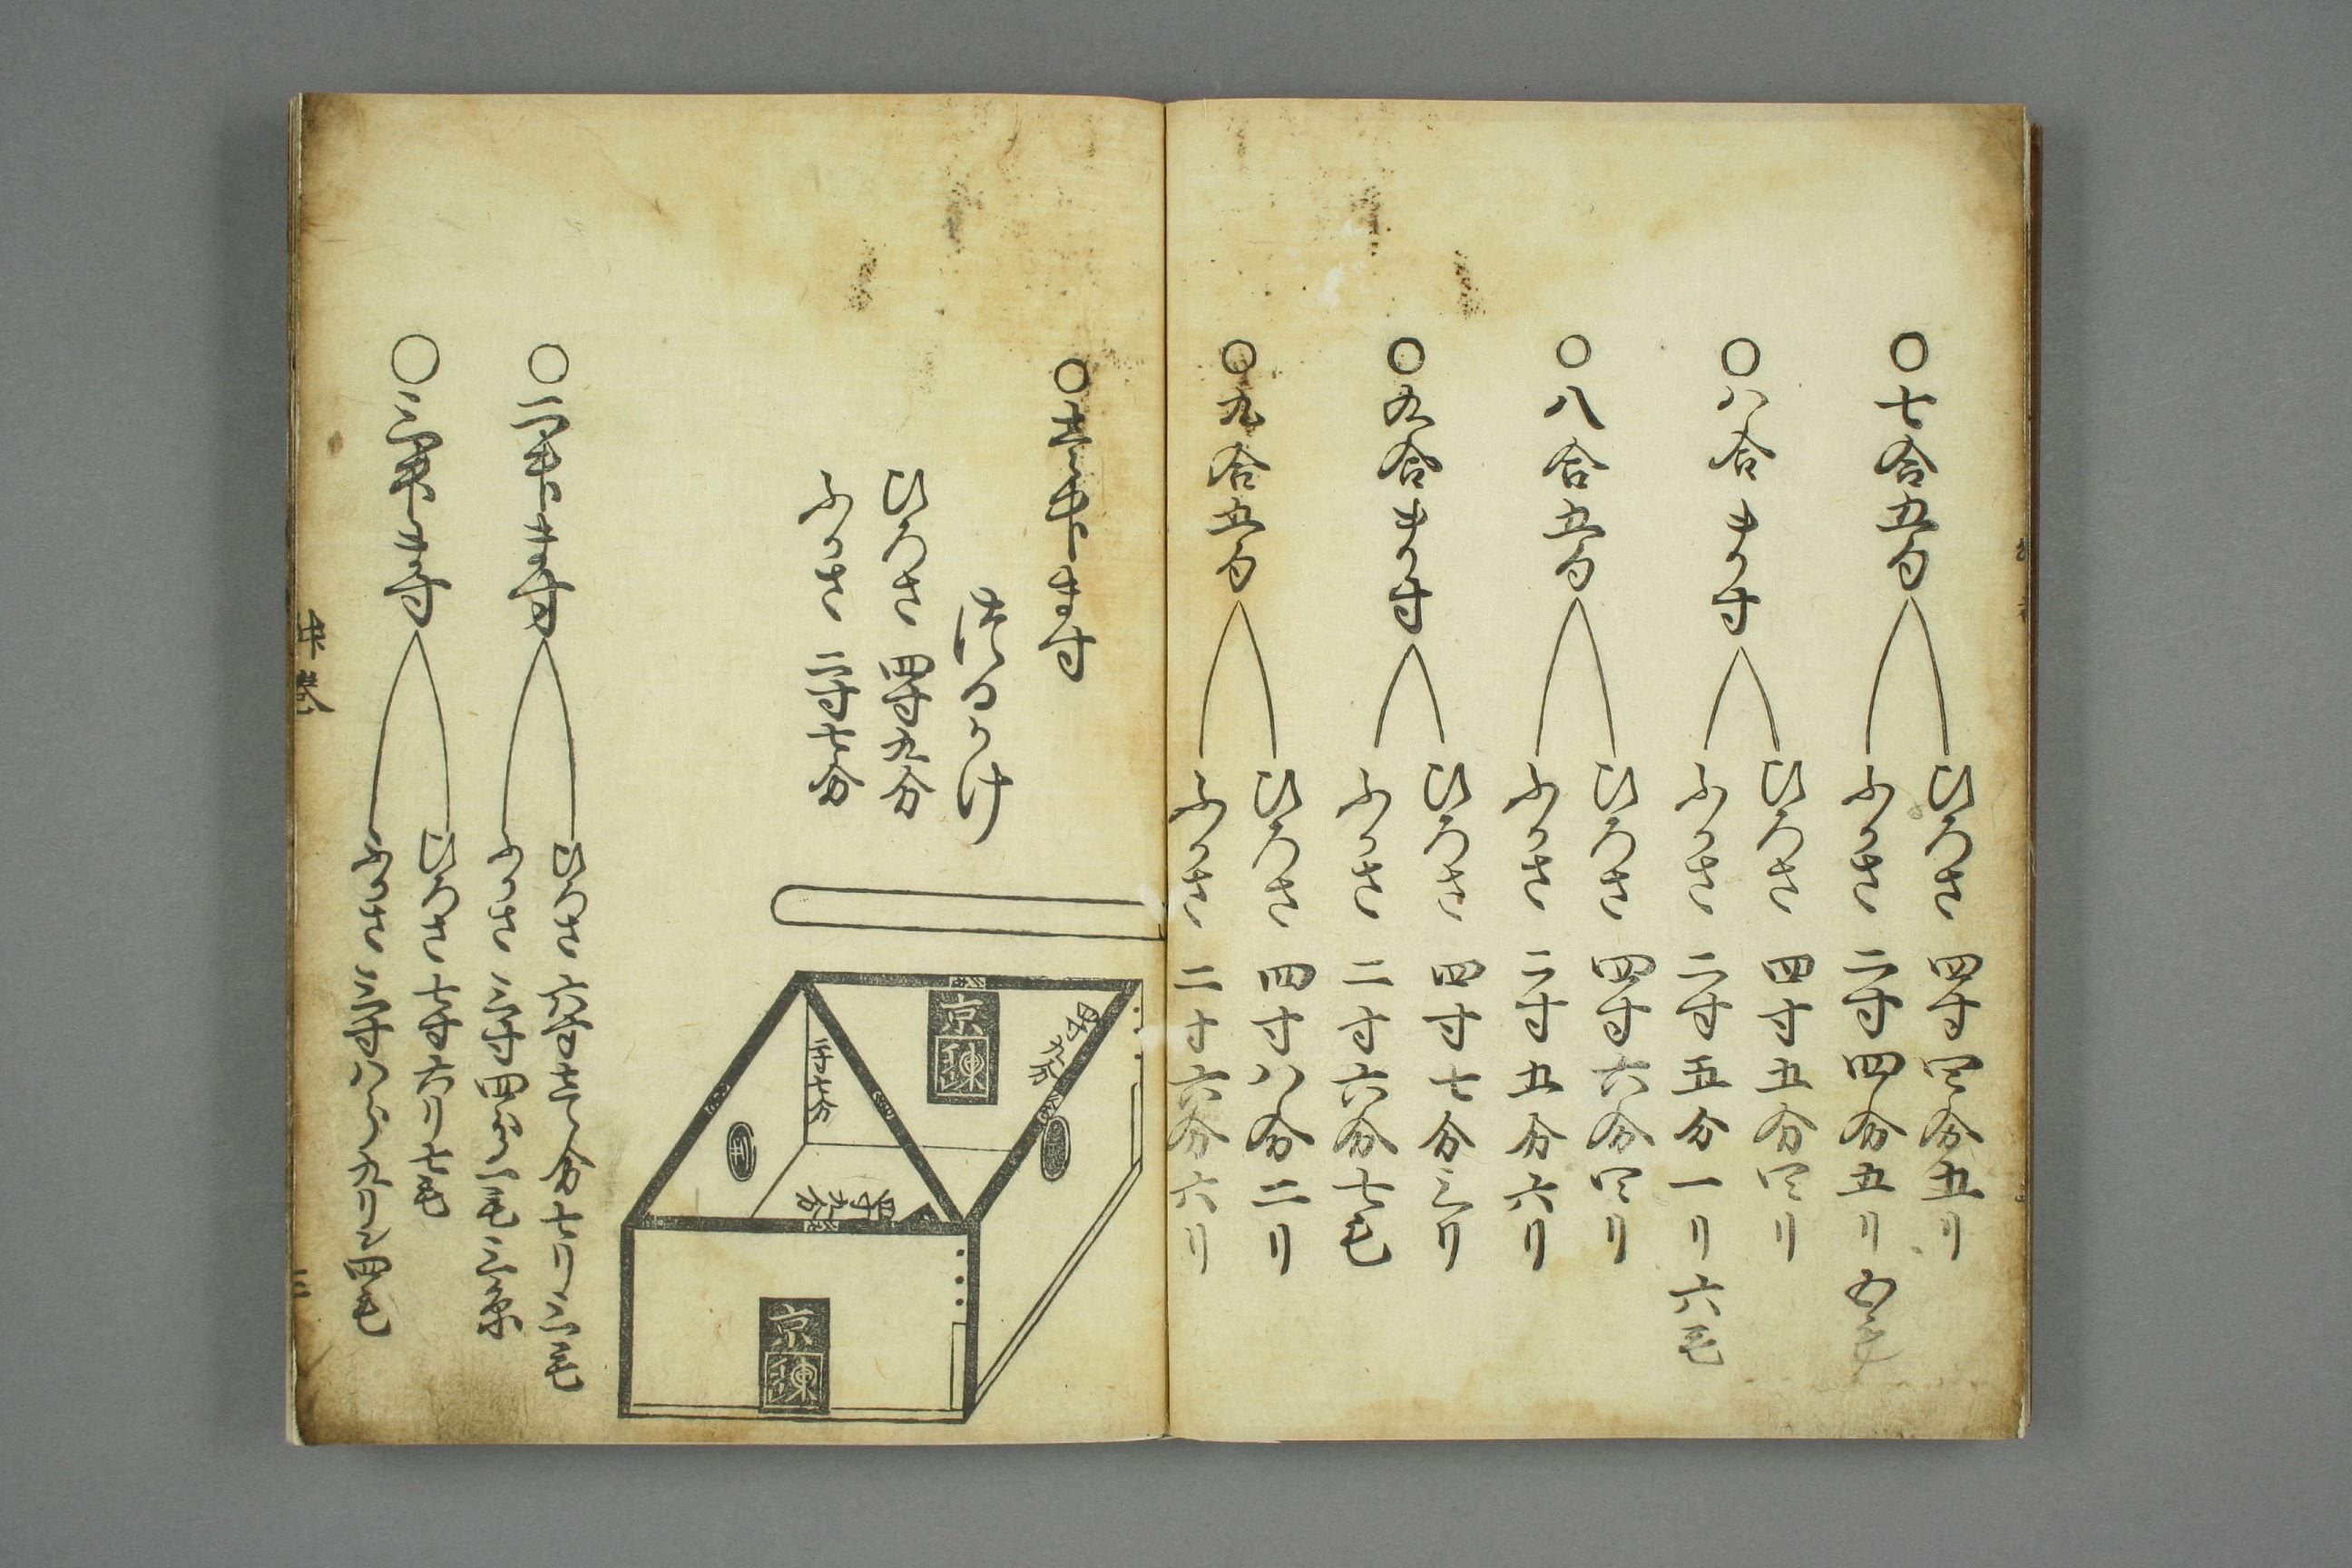 〇七合五勺
ひろさ 四寸四分五リ
ふかさ 二寸四分五リ
〇八合ます
ひろさ 四寸五分四リ
ふかさ 二寸五分一リ六毛
〇八合五勺
ひろさ 四寸六分四リ
ふかさ 二寸五分六リ
〇九合ます
ひろさ 四寸七分三リ
ふかさ 二寸六分七毛
〇九合五勺
ひろさ 四寸八分二リ
ふかさ 二寸六分六リ
〇壱升ます
つるかけ
ひろさ 四寸九分
ふかさ 二寸七分
京
四寸九分
二寸七分
四寸九分
京
〇二升ます
ひろさ 六寸壱分七リ三毛
ふかさ 三寸四分二毛三糸
〇三升ます
ひろさ 七寸六リ七毛
ふかさ 三寸八分九リ四毛